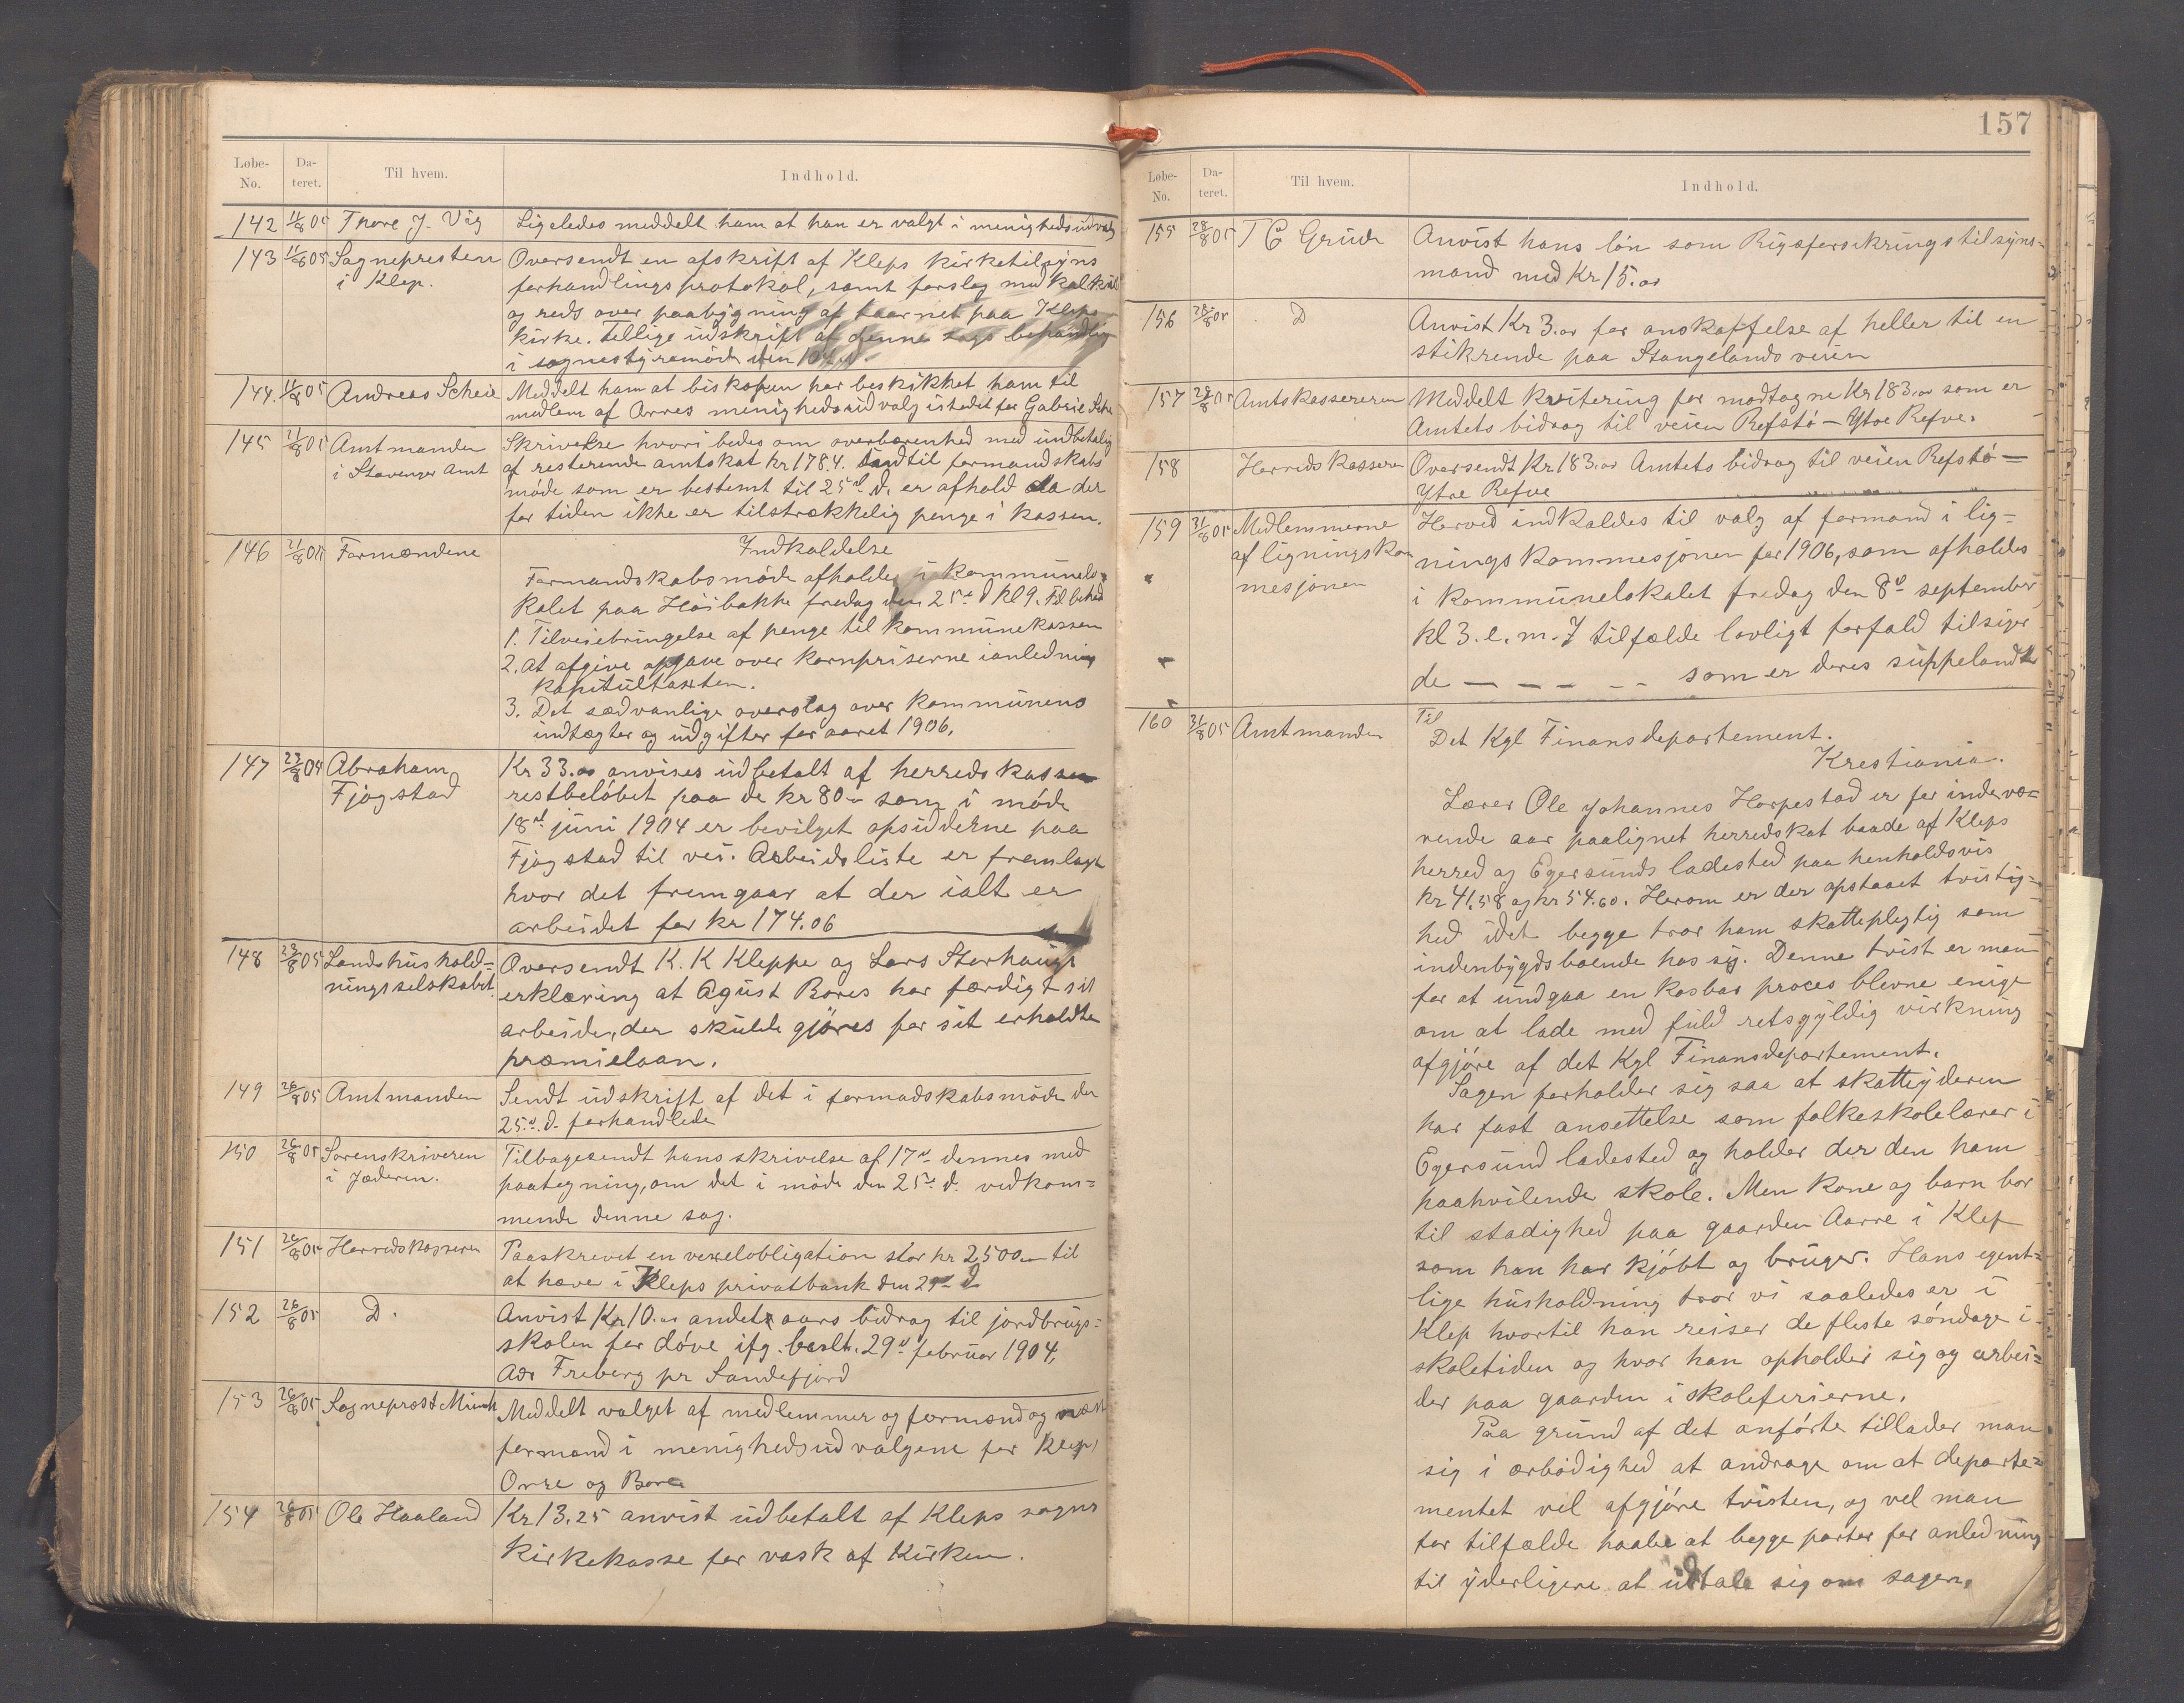 Løbe-No. Da-teret. Til hvem. Indhold.
142 11/8 05 Thore J. Vig Ligeledes meddelt ham at han er valgt i menighedsudvalg
143 11/8 05 Sognepresten Oversendt en afskrift af Kleps kirketilsyns
i Klep. forhandlingsprotokol, samt forslag med kalkül
og reds over paabygning af taarnet paa Kleps
kirke. Tellige udskrift af denne sags behandling
i sognestyremøde den
144. 11/8 05 Andreas Scheie Meddelt ham at biskopen har beskikket ham til
medlem af Orres menighedsudvalg istedet for Gabriel
145 21/8 05 Amtmanden Skrivelse hvori bedes om overbærenhed med indbetalig
i Stavanger Amt af resterende amtskat kr 1784. indtil formandskabs
møde som er bestemt til 25de d. er afhold da der
for tiden ikke er tilstrækkelig penge i kassen.
146 21/8 05 Formændene Indkaldelse
Formandskabsmøde afholdes i kommunelo-
kalet paa Höibakke fredag den 25de d kl 9. Til behad
1. Tilveiebringelse af penge til kommunekassen
2. at afgive opgave over kornpriserne ianledning
kapitultaxten.
3. Det sædvanlige overslag over kommunens
indtægter og udgifter for aaret 1906.
147 23/8 05 Abraham Kr 33.00 anvises udbetalt af herredskassen
Fjogstad restbeløbet paa de kr 80 som i møde
18de juni 1904 er bevilget opsidderne paa
Fjogstad til vei. Arbeidsliste er fremlagt
hvor det fremgaar at der ialt er
arbeidet for kr 174.06
148 23/8 05 Landshushold= Oversendt K. K Kleppe og Lars Storhaugs
ningsselskabet. erklæring at Agust Bores har færdigt sit
arbeide, der skulde gjöres for sit erholdte
præmielaan.
149 26/8 05 Amtmanden Sendt udskrift af det i formadskabsmøde den
25de d. forhandlede
150 26/8 05 Sorenskriveren Tilbagesendt hans skrivelse af 17de dennes med
i Jæderen. paategning, om det i møde den 25de d. vedkom=
mende denne sag.
151 26/8 05 Herredskasseren Paaskrevet en vexelobligation stor kr 2500 til
at hæve i Kleps privatbank den 29de d
152 26/8 05 D. Anvist Kr 10.00 andet aars bidrag til jordbrugs=
skolen for døve ifg. beslt. 29de februar 1904,
Adr Freberg pr Sandefjord
153 26/8 05 Sogneprost Münch Meddelt valget af medlemmer og formand og næst
formand i menighedsudvalgene for Klep,
Orre og Bore
154 26/8 05 Ole Haaland Kr 13.25 anvist udbetalt af Kleps sogns
kirkekasse for vask af Kirken.
157
Løbe-No. Da-teret. Til hvem. Indhold.
155 28/8 05 T E Grude Anvist hans løn som Rigsforsikringstilsyns=
mand med Kr 15.00
156 28/8 05 D Anvist Kr 3.00 for anskaffelse af heller til en
stikrende paa Stangelands veien
157 28/8 05 Amtskassereren Meddelt kvitering for modtagne Kr 183.00 som er
Amtets bidrag til veien Refstö – Ytre Refve.
158 Herredskasseren Oversendt Kr 183.00 Amtets bidrag til veien Refstö –
Ytre Refve
159 31/8 05 Medlemmerne Herved indkaldes til valg af formand i lig=
af ligningskom nings kommesjonen for 1906, som afholdes
mesjonen i kommunelokalet fredag den 8de september
kl 3. e. m. I tilfælde lovligt forfald tilsiger
de – – – – – som er deres suppelandter
160 31/8 05 Amtmanden Til
Det Kgl Finansdepartement.
Krestiania.
Lærer Ole Johannes Horpestad er for indevæ=
rende aar paalignet herredskat baade af Kleps
herred og Egersunds ladested paa henholdsvis
kr 41.58 og kr 54.60. Herom er der opstaaet tvistig=
hed idet begge tror ham skattepligtig som
indenbygdsboende hos sig. Denne tvist er man
for at undgaa en kosbar proces blevne enige
om at lade med fuld retsgyldig virkning
afgjöre af det Kgl Finansdepartement.
Sagen forholder sig saa at skatteyderen
har fast ansettelse som folkeskolelærer i
Egersund ladested og holder der den ham
paahvilende skole. Men kone og barn bor
til stadighed paa gaarden Aarre i Klep
som han har kjöbt og bruger. Hans egent=
lige husholdning tror vi saaledes er i
Klep hvortil han reiser de fleste söndage i
skoletiden og hvor han opholder sig og arbei=
der paa gaarden i skoleferierne.
Paa grund af det anförte tillader man
sig i ærbødighed at andrage om at departe=
mentet vil afgjöre tvisten, og vel man
for tilfælde haabe at begge parter før anledning
til yderligere at udtale sig om sagen.